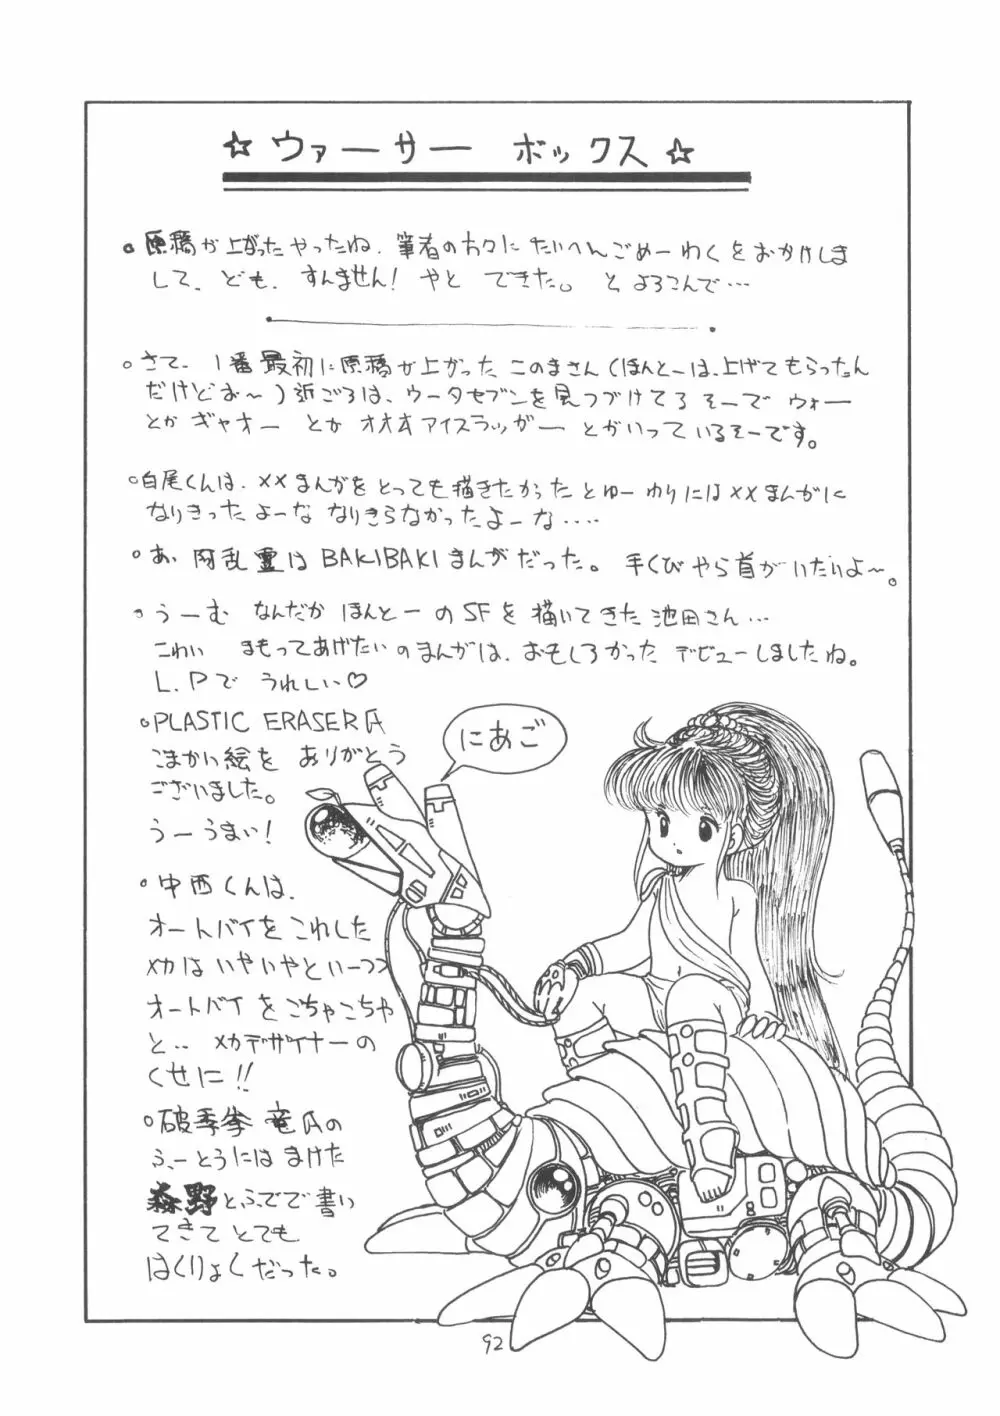 ☆ ウァーサー ボックス ☆
。原稿が上がったやったね、筆者の方々にたいへんごめーわくをおかけしまして、ども、すんません! やと できた。 と よろこんで…
。さて、1番最初に原稿が上がった このまさん(ほんとーは、上げてもらったん
だけどお〜)近ごろは、ウータセブンを見つづけてる そーで ウォー
とか ギャオー とか オオオアイスラッガー とかいっているそーです。
。白尾くんは、××まんがをとっても描きたかったとゆーわりには××まんがに
なりきったよーな なりきらなかったよーな‥‥
。あ、阿乱霊はBAKIBAKIまんがだった。 手くびやら首がいたいよ〜。
。うーむ なんだか ほんとーのSFを描いてきた池田さん…
こわい まもってあげたいのまんがは、おもしろかった デビューしましたね。
L.Pで うれしい♡
。PLASTIC ERASER氏
こまかい絵を ありがとう
ございました。
うーうまい!
。中西くんは、
オートバイをこれした
メカはいやいやといーつつ
オートバイをごちゃごちゃ
と‥ メカデザイナーの
くせに!!
。破季拳 竜氏の
ふーとうには まけた
森野とふでで書い
てきて とても
はくりょくだった。
にあご
92